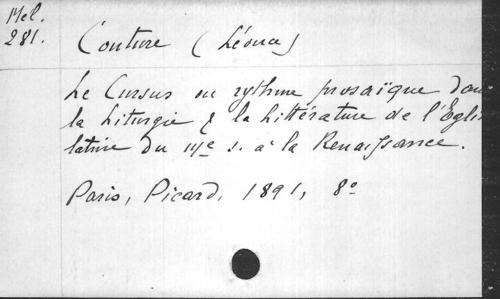 Mél.
281.
Couture (Léonce)
Le Cursus ou rythme prosaïque dans
la Liturgie & la Littérature de l'Eglise
latine du IIIe s. à la Renaissance.
Paris, Picard, 1891, 8°